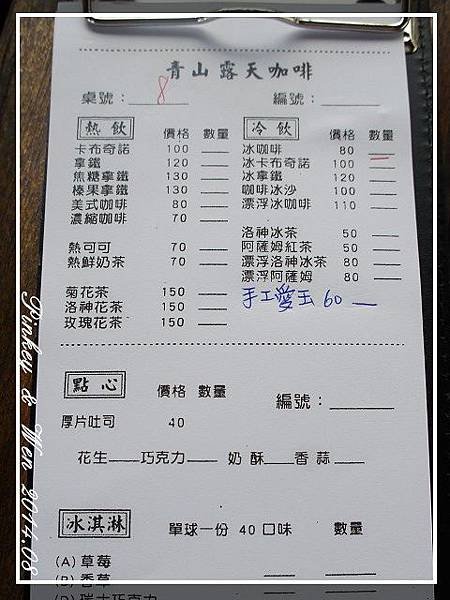 青山露天咖啡
桌號：8 編號：
熱飲 價格 數量 冷飲 價格 數量
卡布奇諾 100 冰咖啡 80
拿鐵 120 冰卡布奇諾 100
焦糖拿鐵 130 冰拿鐵 120
榛果拿鐵 130 咖啡冰沙 100
美式咖啡 80 漂浮冰咖啡 110
濃縮咖啡 70
洛神冰茶 50
熱可可 70 阿薩姆紅茶 50
熱鮮奶茶 70 漂浮洛神冰茶 80
漂浮阿薩姆 80
菊花茶 150 手工愛玉 60
洛神花茶 150
玫瑰花茶 150
點心 價格 數量 編號：
厚片吐司 40
花生 巧克力 奶酥 香蒜
冰淇淋 單球一份 40 口味 數量
(A) 草莓
(B) 香草
(D) 瑞士巧克力
Pinkey & Wen 2014.08